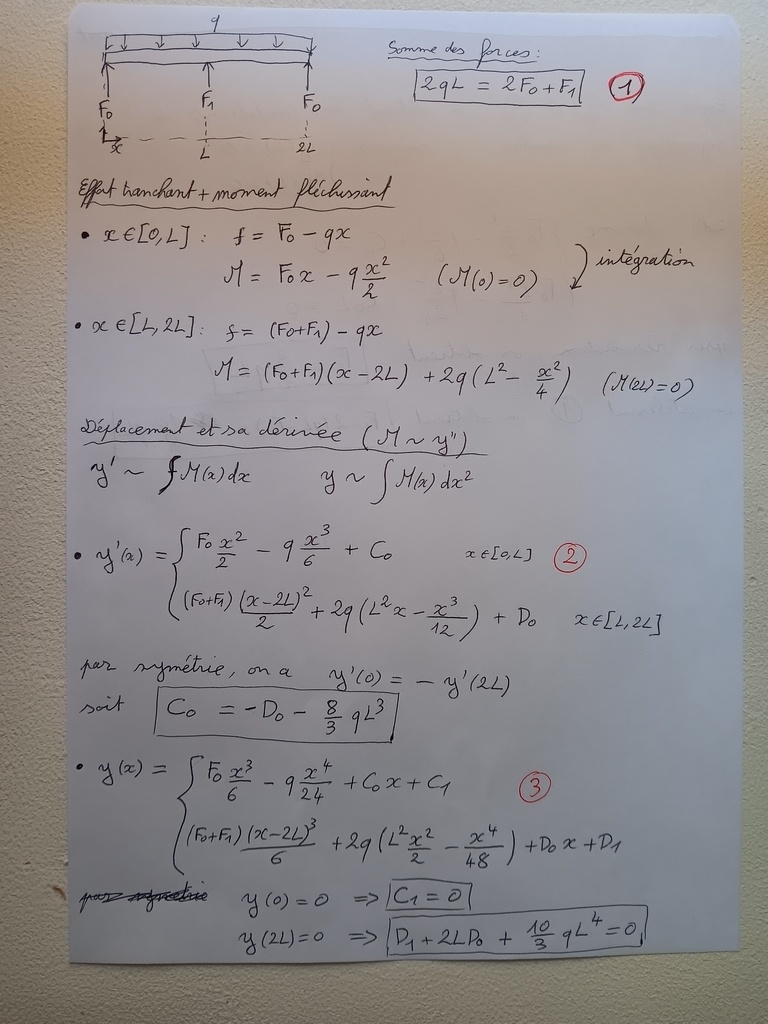 q
Somme des forces :
2qL = 2F₀ + F₁ ①
F₀ F₁ F₀
x L 2L
Effort tranchant + moment fléchissant
• x ∈ [0, L] : f = F₀ − qx
M = F₀x − q x²/2 (M(0) = 0) intégration
• x ∈ [L, 2L] : f = (F₀+F₁) − qx
M = (F₀+F₁)(x − 2L) + 2q(L² − x²/4) (M(2L) = 0)
Déplacement et sa dérivée (M ~ y'')
y' ~ ∫M(x)dx y ~ ∫M(x)dx²
• y'(x) = { F₀ x²/2 − q x³/6 + C₀ x ∈ [0, L] ②
(F₀+F₁) (x−2L)²/2 + 2q(L²x − x³/12) + D₀ x ∈ [L, 2L]
par symétrie, on a y'(0) = − y'(2L)
soit C₀ = −D₀ − 8/3 qL³
• y(x) = { F₀ x³/6 − q x⁴/24 + C₀x + C₁ ③
(F₀+F₁) (x−2L)³/6 + 2q(L² x²/2 − x⁴/48) + D₀x + D₁
par symétrie y(0) = 0 => C₁ = 0
y(2L) = 0 => D₁ + 2LD₀ + 10/3 qL⁴ = 0